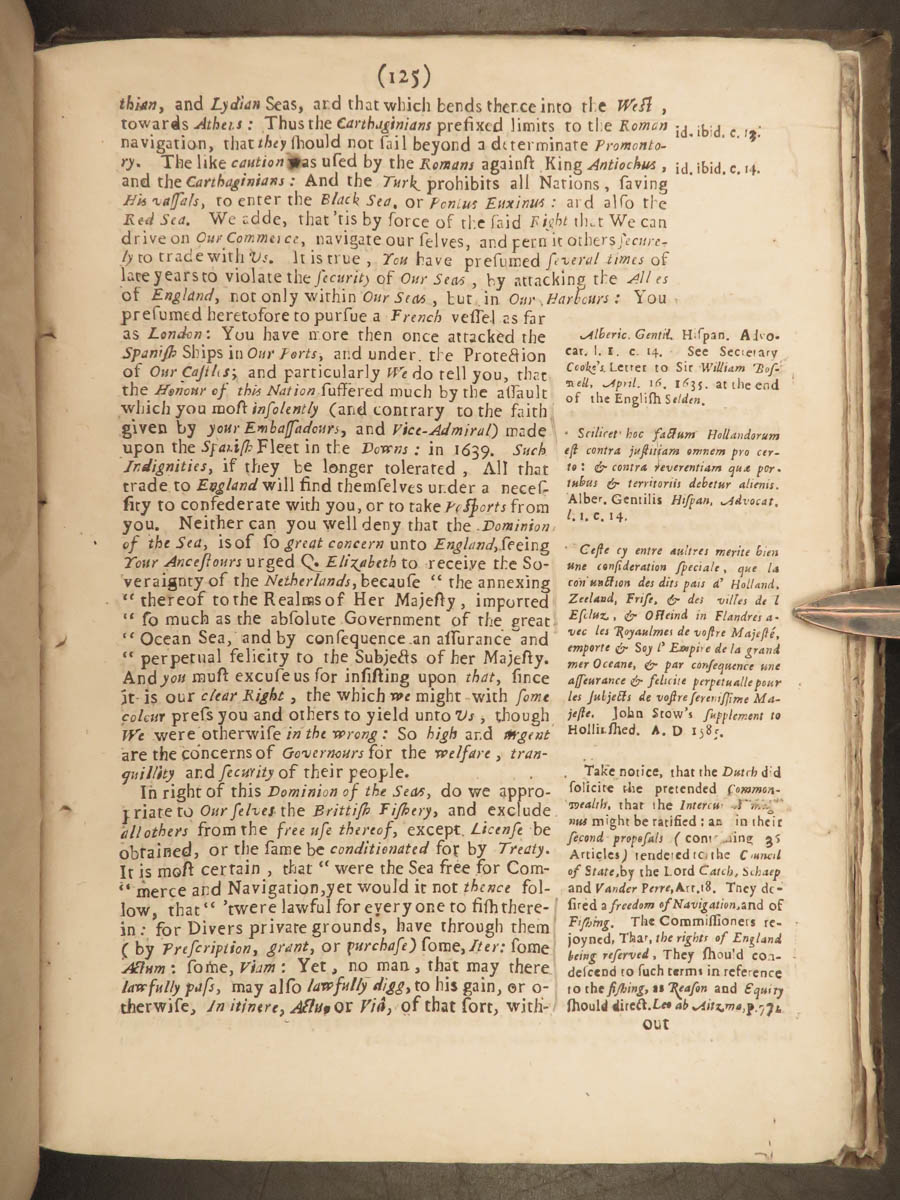 (125)
thian, and Lydian Seas, and that which bends thence into the Weſt,
towards Athens: Thus the Carthaginians prefixed limits to the Roman
navigation, that they ſhould not ſail beyond a determinate Promonto-
ry. The like caution was uſed by the Romans againſt King Antiochus,
and the Carthaginians: And the Turk prohibits all Nations, ſaving
His vaſſals, to enter the Black Sea, or Pontus Euxinus: and alſo the
Red Sea. We adde, that 'tis by force of the ſaid Right that We can
drive on Our Commerce, navigate our ſelves, and permit others ſecure-
ly to trade with Us. It is true, You have preſumed ſeveral times of
late years to violate the ſecurity of Our Seas, by attacking the Allies
of England, not only within Our Seas, but in Our Harbours: You
preſumed heretofore to purſue a French veſſel as far
as London: You have more then once attacked the
Spaniſh Ships in Our Ports, and under the Protection
of Our Caſtles; and particularly We do tell you, that
the Honour of this Nation ſuffered much by the aſſault
which you moſt inſolently (and contrary to the faith
given by your Embaſſadours, and Vice-Admiral) made
upon the Spaniſh Fleet in the Downs: in 1639. Such
Indignities, if they be longer tolerated, All that
trade to England will find themſelves under a neceſ-
ſity to confederate with you, or to take Paſports from
you. Neither can you well deny that the Dominion
of the Sea, is of ſo great concern unto England, ſeeing
Your Anceſtours urged Q. Elizabeth to receive the So-
veraignty of the Netherlands, becauſe “ the annexing
“ thereof to the Realms of Her Majeſty, imported
“ ſo much as the abſolute Government of the great
“ Ocean Sea, and by conſequence an aſſurance and
“ perpetual felicity to the Subjects of her Majeſty.
And you muſt excuſe us for inſiſting upon that, ſince
it is our clear Right, the which we might with ſome
colour preſs you and others to yield unto Us, though
We were otherwiſe in the wrong: So high and urgent
are the concerns of Governours for the welfare, tran-
quillity and ſecurity of their people.
In right of this Dominion of the Seas, do we appro-
priate to Our ſelves the Brittiſh Fiſhery, and exclude
all others from the free uſe thereof, except Licenſe be
obtained, or the ſame be conditionated for by Treaty.
It is moſt certain, that “ were the Sea free for Com-
“ merce and Navigation, yet would it not thence fol-
low, that “ 'twere lawful for every one to fiſh there-
in: for Divers private grounds, have through them
(by Preſcription, grant, or purchaſe) ſome, Iter: ſome
Actum: ſome, Viam: Yet, no man, that may there
lawfully paſs, may alſo lawfully digg, to his gain, or o-
therwiſe, In itinere, Actu, or Viâ, of that ſort, with-
out
id. ibid. c. 13.
id. ibid. c. 14.
Alberic. Gentil. Hiſpan. Advo-
cat. l. 1. c. 14. See Secretary
Cooke's Letter to Sir William Boſ-
well, April. 16. 1635. at the end
of the Engliſh Selden.
Scilicet hoc factum Hollandorum
eſt contra juſtitiam omnem pro cer-
to: & contra reverentiam quæ por-
tubus & territoriis debetur alienis.
Alber. Gentilis Hiſpan. Advocat.
l. 1. c. 14.
Ceſte cy entre aultres merite bien
une conſideration ſpeciale, que la
conjunction des dits pais d' Holland,
Zeeland, Friſe, & des villes de l
Eſcluz, & Oſteind in Flandres a-
vec les Royaulmes de voſtre Majeſté,
emporte & Soy l' Empire de la grand
mer Oceane, & par conſequence une
aſſeurance & felicite perpetualle pour
les ſubjects de voſtre ſereniſſime Ma-
jeſte. John Stow's ſupplement to
Hollinſhed. A. D 1585.
Take notice, that the Dutch did
ſolicite the pretended Common-
wealth, that the
nus might be ratified: in their
ſecond propoſals ( 36
Articles) tendered to the Council
of State, by the Lord Catch, Schaep
and Vander Perre, Art. 18. They de-
ſired a freedom of Navigation, and of
Fiſhing. The Commiſſioners re-
joyned, That, the rights of England
being reſerved, They ſhou'd con-
deſcend to ſuch terms in reference
to the fiſhing, as Reaſon and Equity
ſhould direct. Leo ab Aitzma, p.